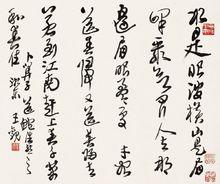 水是眼波橫山是眉
峰聚欲問行人去那
邊眉眼盈盈處才始
送春歸又送君歸去
若到江南趕上春千萬
和春住
卜算子送鮑浩然之
浙東 王觀